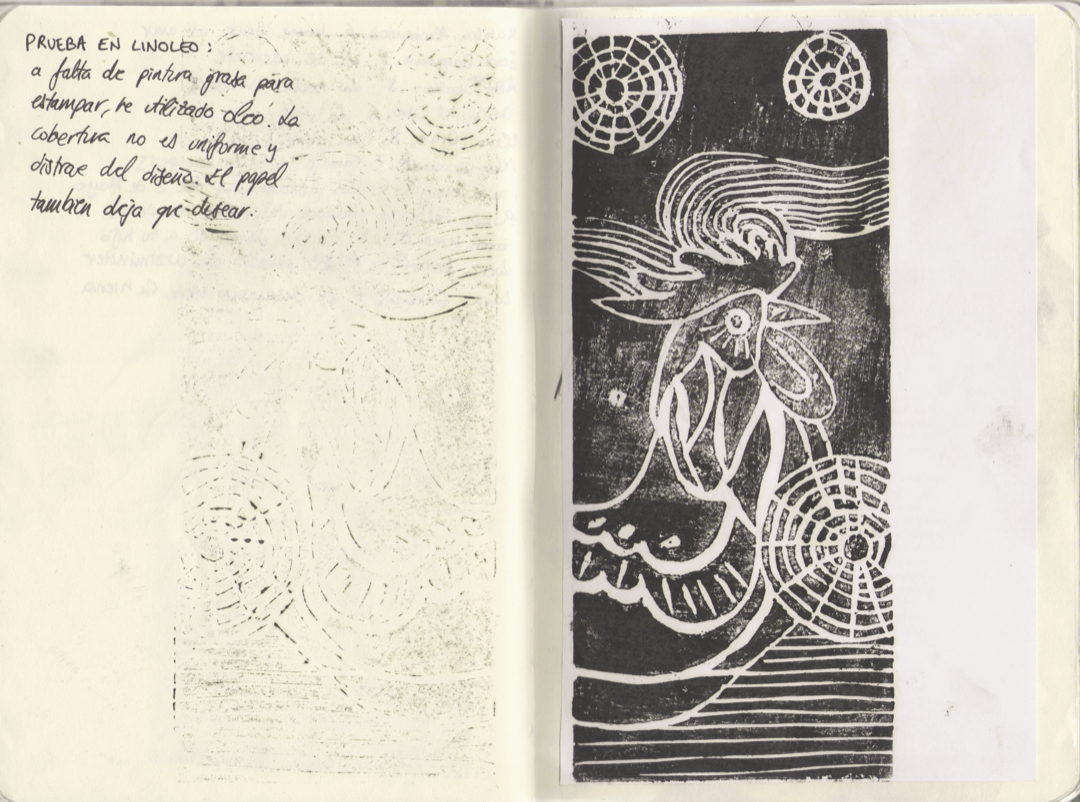 PRUEBA EN LINOLEO:
a falta de pintura grasa para
estampar, he utilizado óleo. La
cobertura no es uniforme y
distrae del diseño. El papel
tambien deja que desear.